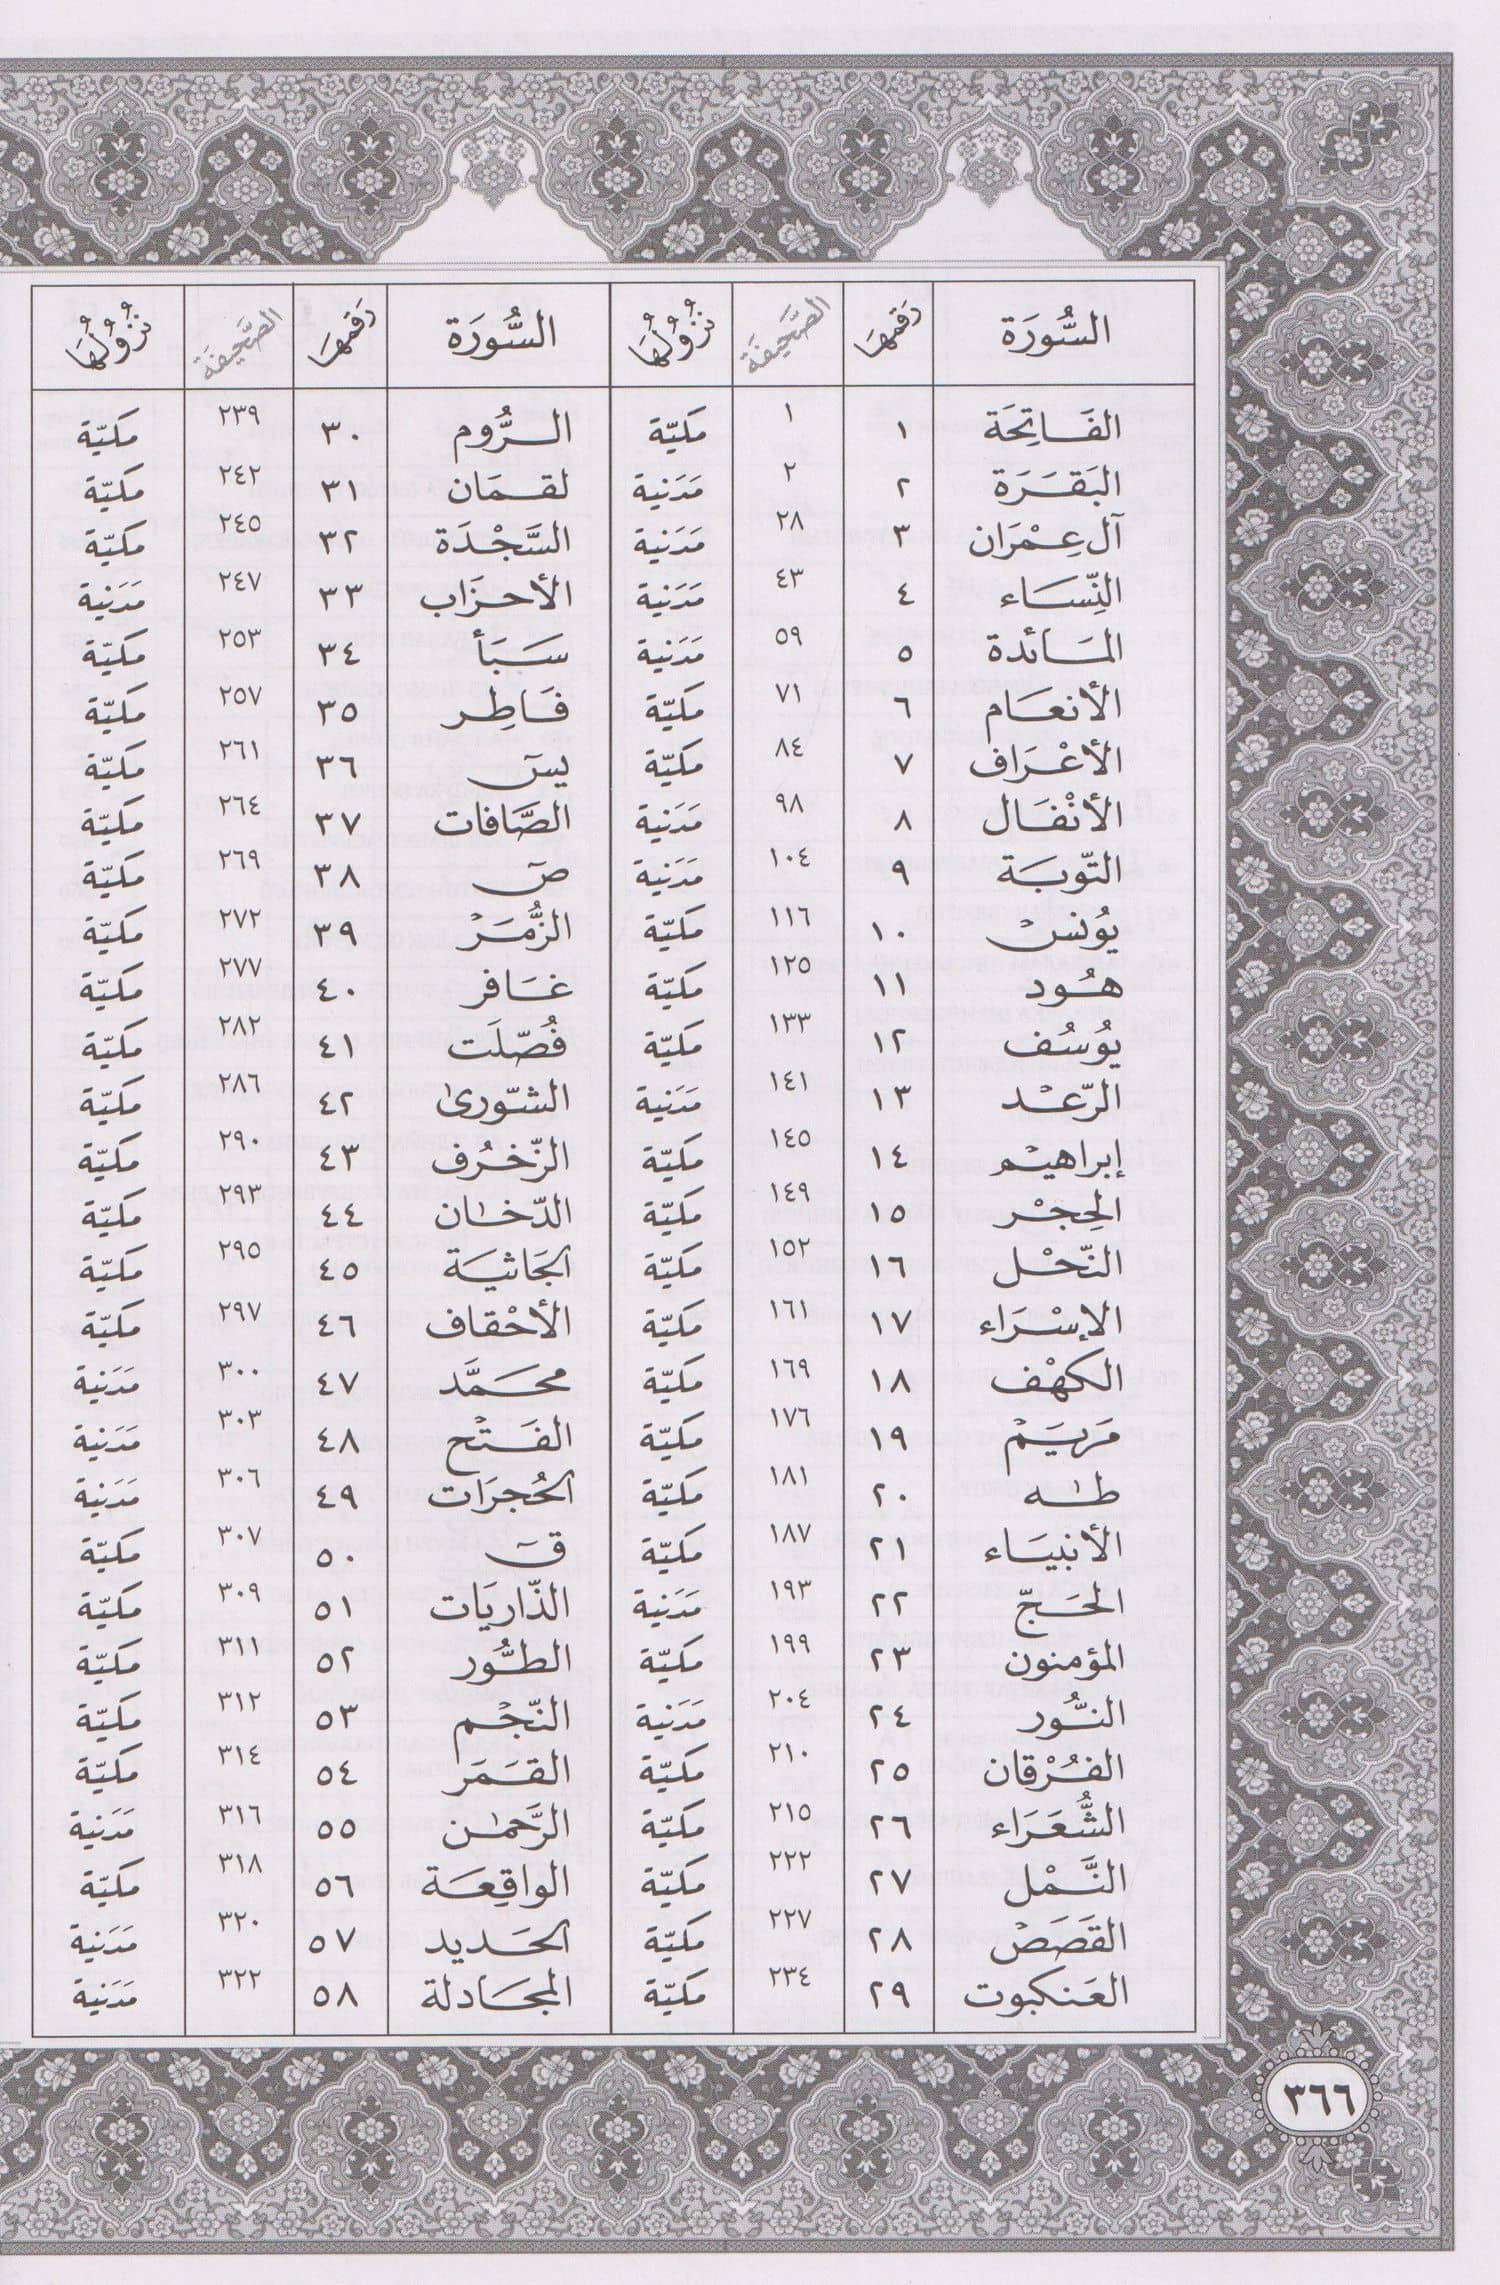 السُّورَة رقمها الصَّحِيفَة نُزُولُها السُّورَة رقمها الصَّحِيفَة نُزُولُها
الفَاتِحَة ١ ١ مَكيّة الرُّوم ٣٠ ٢٣٩ مَكيّة
البَقَرَة ٢ ٢ مَدَنية لقمَان ٣١ ٢٤٢ مَكيّة
آل عِمْرَان ٣ ٢٨ مَدَنية السَّجْدَة ٣٢ ٢٤٥ مَكيّة
النِّسَاء ٤ ٤٣ مَدَنية الأحزَاب ٣٣ ٢٤٧ مَدَنية
المَائدة ٥ ٥٩ مَدَنية سَبَأ ٣٤ ٢٥٣ مَكيّة
الأنعَام ٦ ٧١ مَكيّة فَاطِر ٣٥ ٢٥٧ مَكيّة
الأعْرَاف ٧ ٨٤ مَكيّة يسٓ ٣٦ ٢٦١ مَكيّة
الأنْفَال ٨ ٩٨ مَدَنية الصَّافات ٣٧ ٢٦٤ مَكيّة
التّوبَة ٩ ١٠٤ مَدَنية صٓ ٣٨ ٢٦٩ مَكيّة
يُونسْ ١٠ ١١٦ مَكيّة الزُّمَرْ ٣٩ ٢٧٢ مَكيّة
هُود ١١ ١٢٥ مَكيّة غَافر ٤٠ ٢٧٧ مَكيّة
يُوسُف ١٢ ١٣٣ مَكيّة فُصّلَت ٤١ ٢٨٢ مَكيّة
الرّعْد ١٣ ١٤١ مَدَنية الشّورىٰ ٤٢ ٢٨٦ مَكيّة
إبراهيْم ١٤ ١٤٥ مَكيّة الزّخرُف ٤٣ ٢٩٠ مَكيّة
الحِجْر ١٥ ١٤٩ مَكيّة الدّخَان ٤٤ ٢٩٣ مَكيّة
النّحْل ١٦ ١٥٢ مَكيّة الجَاثيَة ٤٥ ٢٩٥ مَكيّة
الإسْرَاء ١٧ ١٦١ مَكيّة الأحْقاف ٤٦ ٢٩٧ مَكيّة
الكهْف ١٨ ١٦٩ مَكيّة محمَّد ٤٧ ٣٠٠ مَدَنية
مَريَمْ ١٩ ١٧٦ مَكيّة الفَتْح ٤٨ ٣٠٣ مَدَنية
طه ٢٠ ١٨١ مَكيّة الحُجرَات ٤٩ ٣٠٦ مَدَنية
الأنبيَاء ٢١ ١٨٧ مَكيّة قٓ ٥٠ ٣٠٧ مَكيّة
الحَجّ ٢٢ ١٩٣ مَدَنية الذّاريَات ٥١ ٣٠٩ مَكيّة
المؤمنون ٢٣ ١٩٩ مَكيّة الطُّور ٥٢ ٣١١ مَكيّة
النُّور ٢٤ ٢٠٤ مَدَنية النّجْم ٥٣ ٣١٢ مَكيّة
الفُرْقان ٢٥ ٢١٠ مَكيّة القَمَر ٥٤ ٣١٤ مَكيّة
الشُّعَرَاء ٢٦ ٢١٥ مَكيّة الرَّحمٰن ٥٥ ٣١٦ مَدَنية
النَّمْل ٢٧ ٢٢٢ مَكيّة الواقِعَة ٥٦ ٣١٨ مَكيّة
القَصَصْ ٢٨ ٢٢٧ مَكيّة الحَديد ٥٧ ٣٢٠ مَدَنية
العَنكبوت ٢٩ ٢٣٤ مَكيّة المجَادلة ٥٨ ٣٢٢ مَدَنية
٣٦٦